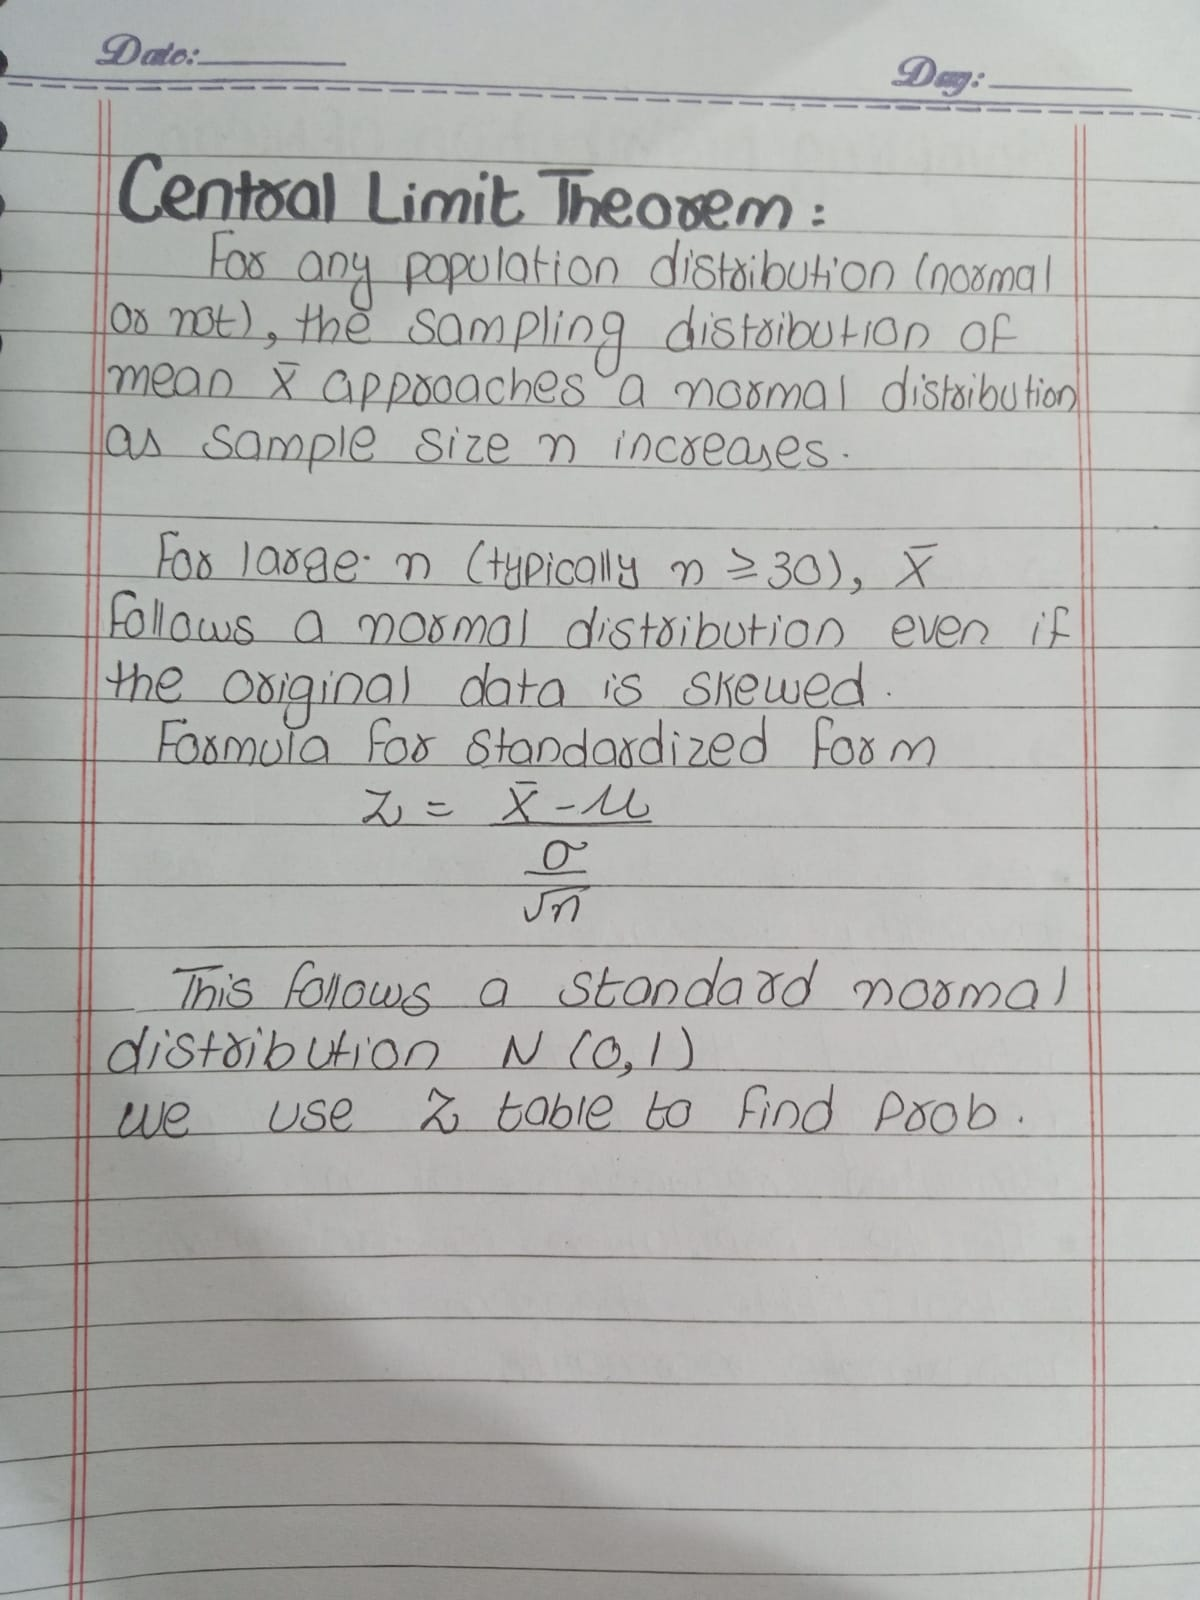 Date:
Day:
Central Limit Theorem:
For any population distribution (normal
or not), the sampling distribution of
mean x̄ approaches a normal distribution
as sample size n increases.
For large n (typically n ≥ 30), x̄
follows a normal distribution even if
the original data is skewed.
Formula for standardized form
Z = x̄ - μ
σ
√n
This follows a standard normal
distribution N (0,1)
we use Z table to find prob.